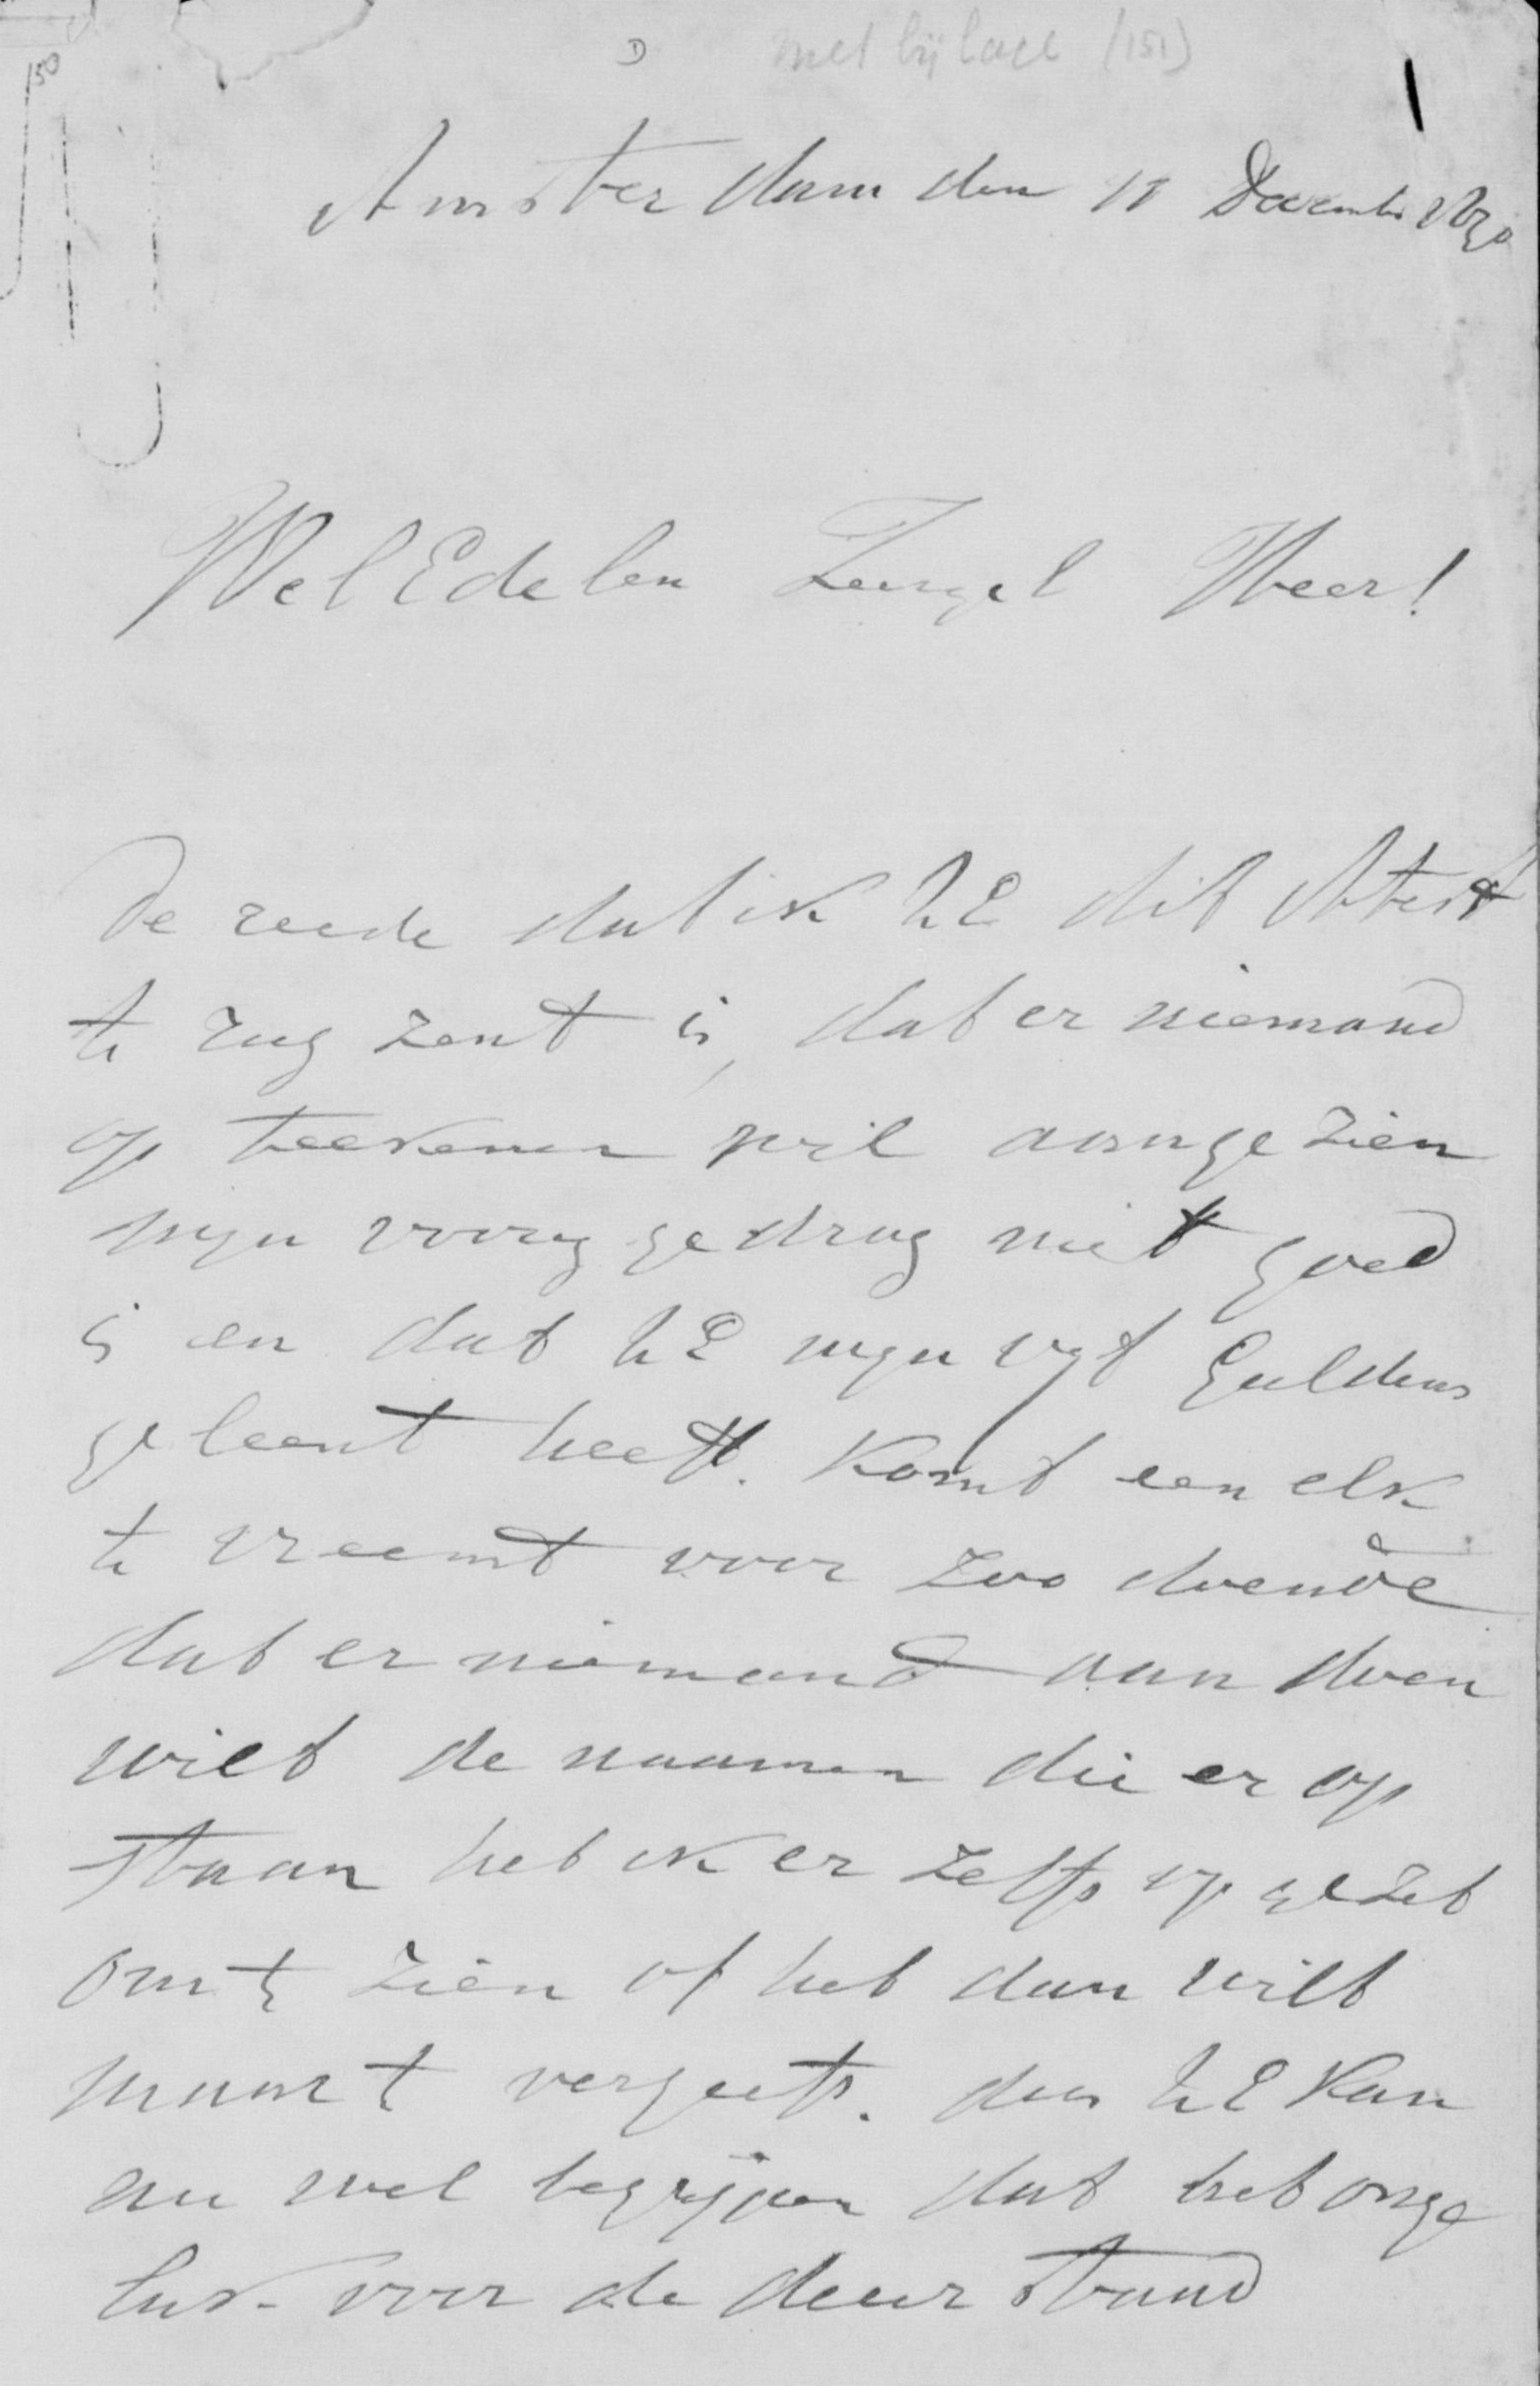 150
met bijlage (151)
Amsterdam den 11 December 1890
WelEdelen Zeergel Heer!
De reede dat ik UE dit Attest
te rug zent is, dat er niemand
op teekenen wil aangezien
myn voorig gedrag niet goed
is en dat UE myn vyf guldens
geleent heeft. Komt een elk
te vreemt voor zoo doende
dat er niemand aan doen
wilt de naamen die er op
staan heb ik er zelfs op gezet
om te zien of het dan wilt
maar t vergeefs. dus UE kan
nu wel begrijpen dat het onge
luk voor de deur staand